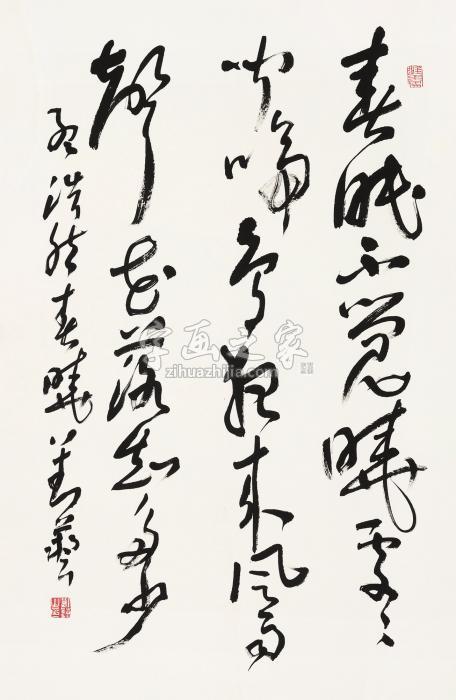 春眠不觉晓处々
闻啼鸟夜来风雨
声花落知多少
孟浩然春晓
字画之家
zihuazhijia.com